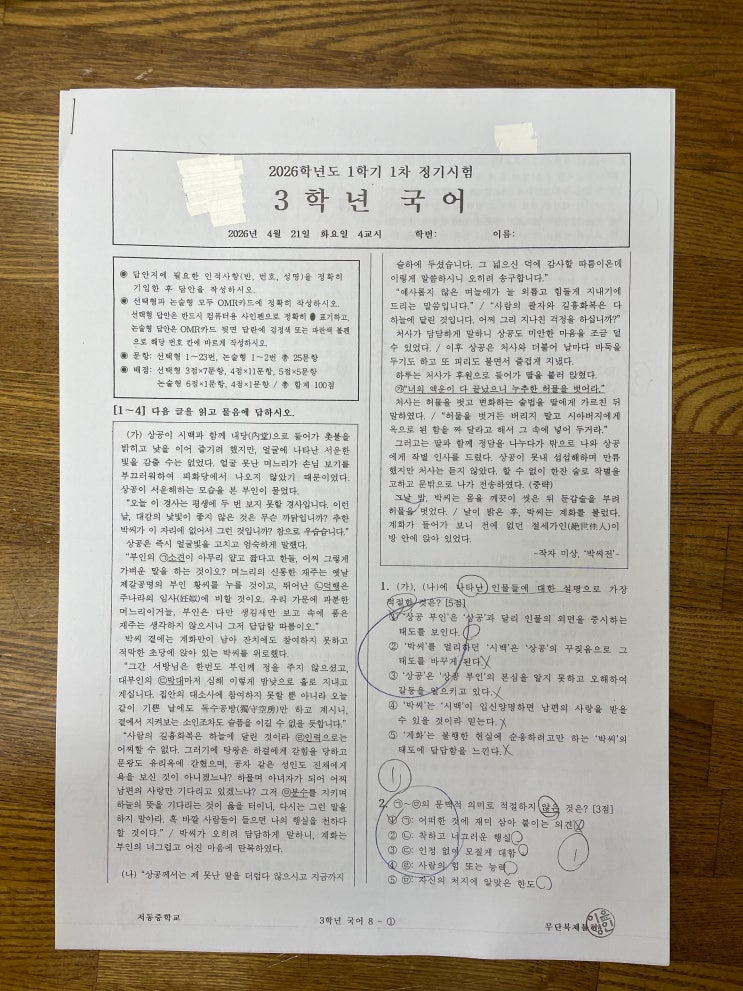 2026학년도 1학기 1차 정기시험
3학년 국어
2026년 4월 21일 화요일 4교시 학번: 이름:
◉ 답안지에 필요한 인적사항(반, 번호, 성명)을 정확히
기입한 후 답안을 작성하시오.
◉ 선택형과 논술형 모두 OMR카드에 정확히 작성하시오.
선택형 답안은 반드시 컴퓨터용 사인펜으로 정확히 ● 표기하고,
논술형 답안은 OMR카드 뒷면 답란에 검정색 또는 파란색 볼펜
으로 해당 번호 칸에 바르게 작성하시오.
◉ 문항: 선택형 1~23번, 논술형 1~2번 총 25문항
◉ 배점: 선택형 3점×7문항, 4점×11문항, 5점×5문항
논술형 6점×1문항, 4점×1문항 / 총 합계 100점
[1~4] 다음 글을 읽고 물음에 답하시오.
(가) 상공이 시백과 함께 내당(內堂)으로 들어가 촛불을
밝히고 낮을 이어 즐기려 했지만, 얼굴에 나타난 서운한
빛을 감출 수는 없었다. 얼굴 못난 며느리가 손님 보기를
부끄러워하여 피화당에서 나오지 않았기 때문이었다.
상공이 서운해하는 모습을 본 부인이 물었다.
"오늘 이 경사는 평생에 두 번 보지 못할 경사입니다. 이런
날, 대감의 낯빛이 좋지 않은 것은 무슨 까닭입니까? 추한
박씨가 이 자리에 없어서 그런 것입니까? 참으로 우습습니다."
상공은 즉시 얼굴빛을 고치고 엄숙하게 말했다.
"부인의 ㉠소견이 아무리 얕고 짧다고 한들, 어찌 그렇게
가벼운 말을 하는 것이오? 며느리의 신통한 재주는 옛날
제갈공명의 부인 황씨를 누를 것이고, 뛰어난 ㉡덕행은
주나라의 임사(妊姒)에 비할 것이오. 우리 가문에 과분한
며느리이거늘, 부인은 다만 생김새만 보고 속에 품은
재주는 생각하지 않으시니 그저 답답할 따름이오."
박씨 곁에는 계화만이 남아 잔치에도 참여하지 못하고
적막한 초당에 앉아 있는 박씨를 위로했다.
"그간 서방님은 한번도 부인께 정을 주지 않으셨고,
대부인의 ㉢박대마저 심해 이렇게 밤낮으로 홀로 지내고
계십니다. 집안의 대소사에 참여하지 못할 뿐 아니라 오늘
같이 기쁜 날에도 독수공방(獨守空房)만 하고 계시니,
곁에서 지켜보는 소인조차도 슬픔을 이길 수 없을 듯합니다."
"사람의 길흉화복은 하늘에 달린 것이라 ㉣인력으로는
어찌할 수 없다. 그러기에 탕왕은 하걸에게 갇힘을 당하고
문왕도 유리옥에 갇혔으며, 공자 같은 성인도 진채에게
욕을 보신 것이 아니겠느냐? 하물며 아녀자가 되어 어찌
남편의 사랑만 기다리고 있겠느냐? 그저 ㉤분수를 지키며
하늘의 뜻을 기다리는 것이 옳을 터이니, 다시는 그런 말을
하지 말아라. 혹 바깥 사람들이 들으면 나의 행실을 천하다
할 것이다." / 박씨가 오히려 담담하게 말하니, 계화는
부인의 너그럽고 어진 마음에 탄복하였다.
(나) "상공께서는 제 못난 딸을 더럽다 않으시고 지금까지
슬하에 두셨습니다. 그 넓으신 덕에 감사할 따름이온데
이렇게 말씀하시니 오히려 송구합니다."
"예사롭지 않은 며늘애가 늘 외롭고 힘들게 지내기에
드리는 말씀입니다." / "사람의 팔자와 길흉화복은 다
하늘에 달린 것입니다. 어찌 그리 지나친 걱정을 하십니까?"
처사가 담담하게 말하니 상공도 미안한 마음을 조금 덜
수 있었다. / 이후 상공은 처사와 더불어 날마다 바둑을
두기도 하고 또 피리도 불면서 즐겁게 지냈다.
하루는 처사가 후원으로 들어가 딸을 불러 앉혔다.
㉮"너의 액운이 다 끝났으니 누추한 허물을 벗어라."
처사는 허물을 벗고 변화하는 술법을 딸에게 가르친 뒤
말하였다. / "허물을 벗거든 버리지 말고 시아버지에게
옥으로 된 함을 짜 달라고 해서 그 속에 넣어 두거라."
그러고는 딸과 함께 정담을 나누다가 밖으로 나와 상공
에게 작별 인사를 드렸다. 상공이 못내 섭섭해하며 만류
했지만 처사는 듣지 않았다. 할 수 없이 한잔 술로 작별을
고하고 문밖으로 나가 전송하였다. (중략)
그날 밤, 박씨는 몸을 깨끗이 씻은 뒤 둔갑술을 부려
허물을 벗었다. / 날이 밝은 후, 박씨는 계화를 불렀다.
계화가 들어가 보니 전에 없던 절세가인(絶世佳人)이
방 안에 앉아 있었다.
-작자 미상, '박씨전'-
1. (가), (나)에 나타난 인물들에 대한 설명으로 가장
적절한 것은? [5점]
① '상공 부인'은 '상공'과 달리 인물의 외면을 중시하는
태도를 보인다.
② '박씨'를 멀리하던 '시백'은 '상공'의 꾸짖음으로 그
태도를 바꾸게 된다.
③ '상공'은 '상공 부인'의 본심을 알지 못하고 오해하여
갈등을 일으키고 있다.
④ '박씨'는 '시백'이 입신양명하면 남편의 사랑을 받을
수 있을 것이라 믿는다.
⑤ '계화'는 불행한 현실에 순응하려고만 하는 '박씨'의
태도에 답답함을 느낀다.
1
2. ㉠~㉤의 문맥적 의미로 적절하지 않은 것은? [3점]
① ㉠: 어떠한 것에 재미 삼아 붙이는 의견
② ㉡: 착하고 너그러운 행실
③ ㉢: 인정 없이 모질게 대함
④ ㉣: 사람의 힘 또는 능력
⑤ ㉤: 자신의 처지에 알맞은 한도
1
저동중학교
3학년 국어 8 - ①
무단복제불허